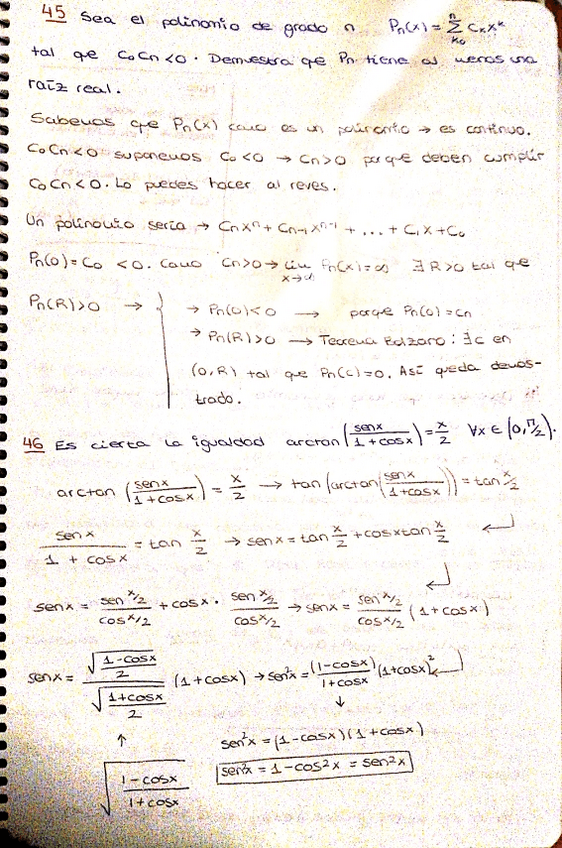 45 Sea el polinomio de grado n Pn(x) = Σ^n_{k=0} Cₖx^k
tal que C₀Cn<0. Demuestra que Pn tiene al menos una
raíz real.
Sabemos que Pn(x) como es un polinomio → es continuo.
C₀Cn<0 suponemos C₀<0 → Cn>0 porque deben cumplir
C₀Cn<0. Lo puedes hacer al reves.
Un polinomio sería → Cnx^n + Cn-1x^{n-1} + ... + C₁x + C₀
Pn(0)=C₀ <0. Como Cn>0 → lim_{x→∞} Pn(x)=∞ ∃R>0 tal que
Pn(R)>0 → { → Pn(0)<0 → porque Pn(0)=Cn
→ Pn(R)>0 → Teorema Bolzano: ∃c en
(0,R) tal que Pn(c)=0. Así queda demos-
trado.
46 Es cierta la igualdad arctan(senx/(1+cosx)) = x/2 ∀x∈(0,π/2).
arctan(senx/(1+cosx)) = x/2 → tan(arctan(senx/(1+cosx))) = tan x/2
senx/(1+cosx) = tan x/2 → senx = tan x/2 + cosx tan x/2
senx = sen x/2 / cos x/2 + cosx · sen x/2 / cos x/2 → senx = sen x/2 / cos x/2 (1+cosx)
senx = √((1-cosx)/2) / √((1+cosx)/2) (1+cosx) → sen²x = (1-cosx)/(1+cosx) (1+cosx)²
↑ ↓
sen²x = (1-cosx)(1+cosx)
√((1-cosx)/(1+cosx))
sen²x = 1-cos²x = sen²x